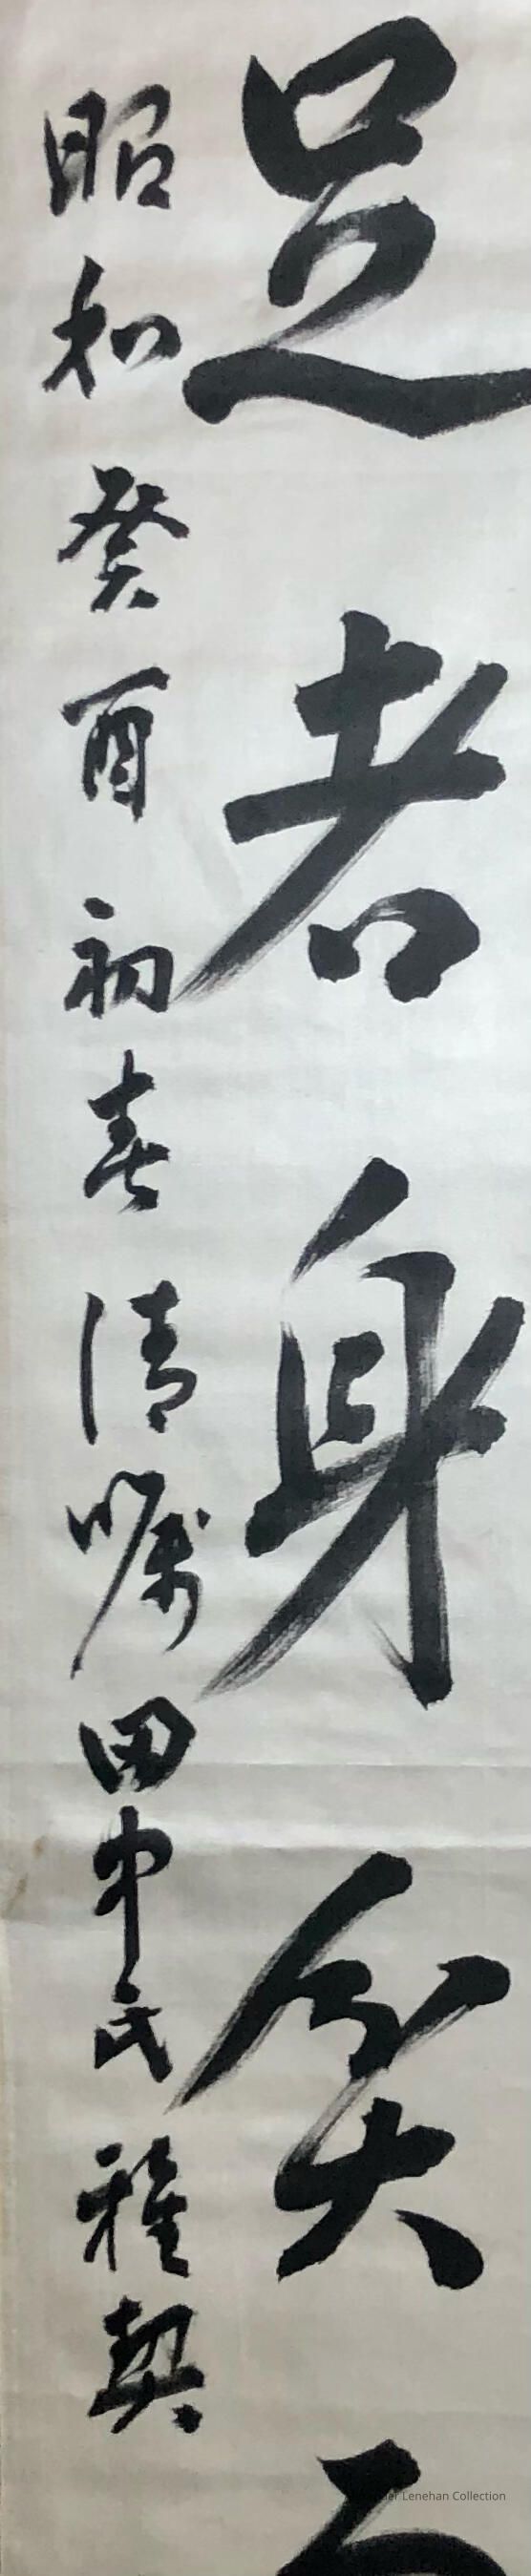 足者身貧
昭和癸酉初春清嘱田中氏雅契
Lenehan Collection